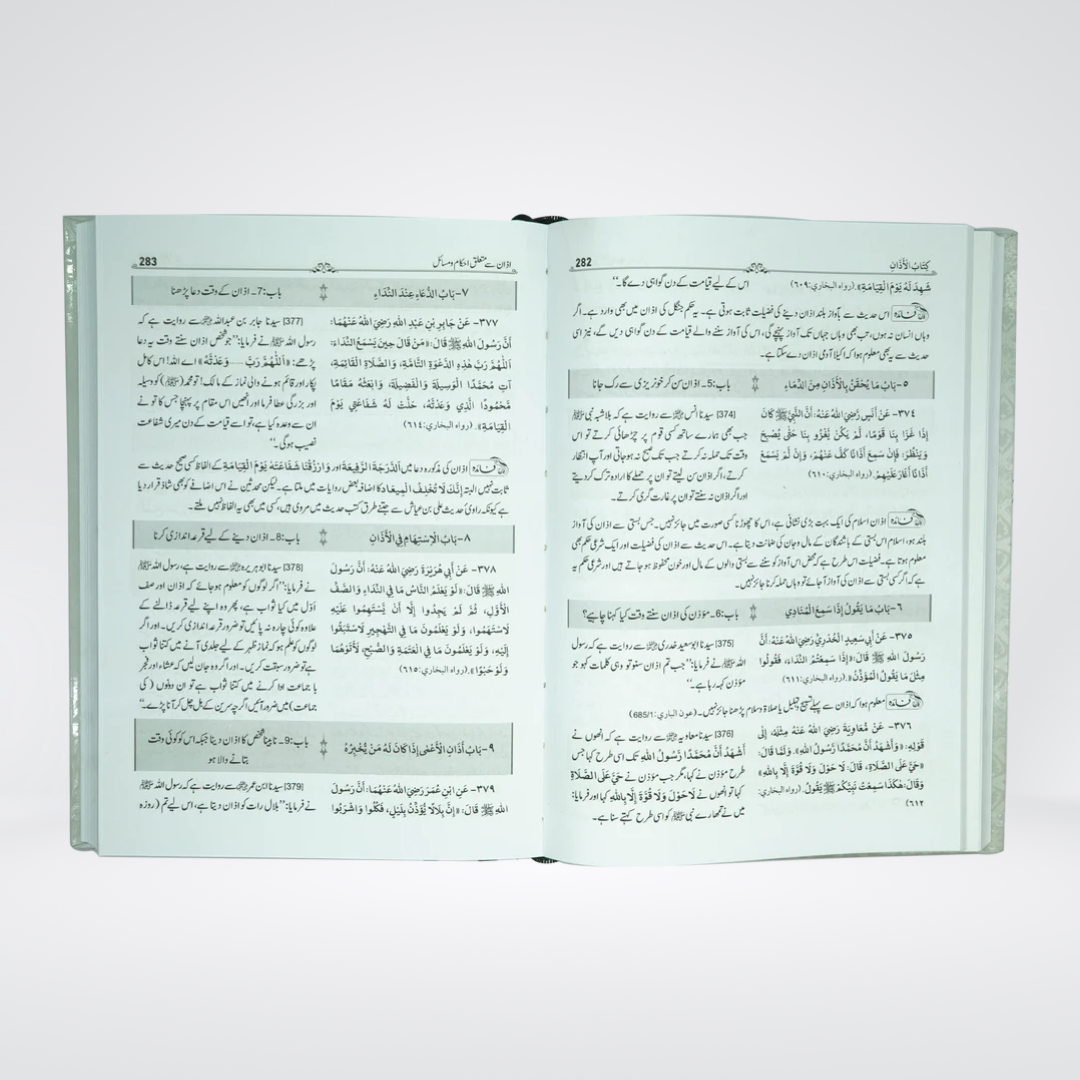 282
كِتَابُ الْأَذَانِ
شَهِدَ لَهُ يَوْمَ الْقِيَامَةِ». (رواه البخاري: ٦٠٩)
اس کے لیے قیامت کے دن گواہی دے گا۔‘‘
فائدہ اس حدیث سے بآواز بلند اذان دینے کی فضیلت ثابت ہوتی ہے۔ یہ حکم جنگل کی اذان میں بھی وارد ہے۔ اگر
وہاں انسان نہ ہوں، تب بھی وہاں جہاں تک آواز پہنچے گی، اس کی آواز سننے والے قیامت کے دن گواہی دیں گے، نیز اسی
حدیث سے یہ بھی معلوم ہوا کہ اکیلا آدمی اذان دے سکتا ہے۔
٥- بَابُ مَا يُحْقَنُ بِالْأَذَانِ مِنَ الدِّمَاءِ
باب: 5۔ اذان سن کر خونریزی سے رک جانا
٣٧٤- عَنْ أَنَسٍ رَضِيَ اللهُ عَنْهُ: أَنَّ النَّبِيَّ ﷺ كَانَ
إِذَا غَزَا بِنَا قَوْمًا، لَمْ يَكُنْ يَغْزُو بِنَا حَتَّى يُصْبِحَ
وَيَنْظُرَ، فَإِنْ سَمِعَ أَذَانًا كَفَّ عَنْهُمْ، وَإِنْ لَمْ يَسْمَعْ
أَذَانًا أَغَارَ عَلَيْهِمْ. (رواه البخاري: ٦١٠)
[374] سیدنا انس ؓ سے روایت ہے کہ بلاشبہ نبی ﷺ
جب بھی ہمارے ساتھ کسی قوم پر چڑھائی کرتے تو اس
وقت تک حملہ نہ کرتے جب تک صبح نہ ہو جاتی اور آپ انتظار
کرتے، اگر اذان سن لیتے تو ان پر حملے کا ارادہ ترک کر دیتے
اور اگر اذان نہ سنتے تو ان پر غارت گری کرتے۔
فائدہ اذان اسلام کی ایک بہت بڑی نشانی ہے، اس کا چھوڑنا کسی صورت میں جائز نہیں۔ جس بستی سے اذان کی آواز
بلند ہو، اسلام اس بستی کے باشندگان کے مال و جان کی ضمانت دیتا ہے۔ اس حدیث سے اذان کی فضیلت اور ایک شرعی حکم بھی
معلوم ہوتا ہے۔ فضیلت اس طرح ہے کہ محض اس آواز کو سننے سے بستی والوں کے مال اور خون محفوظ ہو جاتے ہیں اور شرعی حکم یہ
ہے کہ اگر کسی بستی سے اذان کی آواز آجائے تو وہاں حملہ کرنا جائز نہیں۔
٦- بَابُ مَا يَقُولُ إِذَا سَمِعَ الْمُنَادِي
باب: 6۔ مؤذن کی اذان سنتے وقت کیا کہنا چاہیے؟
٣٧٥- عَنْ أَبِي سَعِيدٍ الْخُدْرِيِّ رَضِيَ اللهُ عَنْهُ: أَنَّ
رَسُولَ اللهِ ﷺ قَالَ: «إِذَا سَمِعْتُمُ النِّدَاءَ، فَقُولُوا
مِثْلَ مَا يَقُولُ الْمُؤَذِّنُ». (رواه البخاري: ٦١١)
[375] سیدنا ابوسعید خدری ؓ سے روایت ہے کہ رسول
اللہ ﷺ نے فرمایا: ’’جب تم اذان سنو تو وہی کلمات کہو جو
مؤذن کہہ رہا ہے۔‘‘
فائدہ معلوم ہوا کہ اذان سے پہلے تسبیح و تہلیل یا صلاۃ و سلام پڑھنا جائز نہیں۔ (عون الباري: 685/1)
٣٧٦- عَنْ مُعَاوِيَةَ رَضِيَ اللهُ عَنْهُ مِثْلَهُ، إِلَى
قَوْلِهِ: «وَأَشْهَدُ أَنَّ مُحَمَّدًا رَسُولُ اللهِ». وَلَمَّا قَالَ:
«حَيَّ عَلَى الصَّلَاةِ، قَالَ: لَا حَوْلَ وَلَا قُوَّةَ إِلَّا بِاللهِ»
وَقَالَ: هٰكَذَا سَمِعْتُ نَبِيَّكُمْ ﷺ يَقُولُ. (رواه البخاري:
٦١٢
[376] سیدنا معاویہ ؓ سے روایت ہے کہ انھوں نے
أَشْهَدُ أَنَّ مُحَمَّدًا رَّسُولُ اللهِ تک اسی طرح کہا جس
طرح مؤذن نے کہا، مگر جب مؤذن نے حَيَّ عَلَى الصَّلَاةِ
کہا تو انھوں نے لَا حَوْلَ وَلَا قُوَّةَ إِلَّا بِاللهِ کہا اور فرمایا:
میں نے تمھارے نبی ﷺ کو اسی طرح کہتے سنا ہے۔
283
اذان سے متعلق احکام و مسائل
٧- بَابُ الدُّعَاءِ عِنْدَ النِّدَاءِ
باب: 7۔ اذان کے وقت دعا پڑھنا
٣٧٧- عَنْ جَابِرِ بْنِ عَبْدِ اللهِ رَضِيَ اللهُ عَنْهُمَا:
أَنَّ رَسُولَ اللهِ ﷺ قَالَ: «مَنْ قَالَ حِينَ يَسْمَعُ النِّدَاءَ:
اَللّٰهُمَّ رَبَّ هٰذِهِ الدَّعْوَةِ التَّامَّةِ، وَالصَّلَاةِ الْقَائِمَةِ،
آتِ مُحَمَّدًا الْوَسِيلَةَ وَالْفَضِيلَةَ، وَابْعَثْهُ مَقَامًا
مَحْمُودًا الَّذِي وَعَدْتَّهُ، حَلَّتْ لَهُ شَفَاعَتِي يَوْمَ
الْقِيَامَةِ». (رواه البخاري: ٦١٤)
[377] سیدنا جابر بن عبداللہ ؓ سے روایت ہے کہ
رسول اللہ ﷺ نے فرمایا: ’’جو شخص اذان سنتے وقت یہ دعا
پڑھے: «اَللّٰهُمَّ رَبَّ ـــــ وَعَدْتَّهُ» اے اللہ! اس کامل
پکار اور قائم ہونے والی نماز کے مالک! تو محمد (ﷺ) کو وسیلہ
اور بزرگی عطا فرما اور انھیں اس مقام پر پہنچا جس کا تو نے
ان سے وعدہ کیا ہے، تو اسے قیامت کے دن میری شفاعت
نصیب ہوگی۔‘‘
فائدہ اذان کی مذکورہ دعا میں اَلدَّرَجَةَ الرَّفِيعَةَ اور وَارْزُقْنَا شَفَاعَتَهُ يَوْمَ الْقِيَامَةِ کے الفاظ کسی صحیح حدیث سے
ثابت نہیں البتہ إِنَّكَ لَا تُخْلِفُ الْمِيعَادَ کا اضافہ بعض روایات میں ملتا ہے۔ لیکن محدثین نے اس اضافے کو بھی شاذ قرار دیا
ہے کیونکہ راوی حدیث علی بن عیاش سے جتنے طرق کتب حدیث میں مروی ہیں، کسی میں بھی یہ الفاظ نہیں ملتے۔
٨- بَابُ الِاسْتِهَامِ فِي الْأَذَانِ
باب: 8۔ اذان دینے کے لیے قرعہ اندازی کرنا
٣٧٨- عَنْ أَبِي هُرَيْرَةَ رَضِيَ اللهُ عَنْهُ: أَنَّ رَسُولَ
اللهِ ﷺ قَالَ: «لَوْ يَعْلَمُ النَّاسُ مَا فِي النِّدَاءِ وَالصَّفِّ
الْأَوَّلِ، ثُمَّ لَمْ يَجِدُوا إِلَّا أَنْ يَسْتَهِمُوا عَلَيْهِ
لَاسْتَهَمُوا، وَلَوْ يَعْلَمُونَ مَا فِي التَّهْجِيرِ لَاسْتَبَقُوا
إِلَيْهِ، وَلَوْ يَعْلَمُونَ مَا فِي الْعَتَمَةِ وَالصُّبْحِ، لَأَتَوْهُمَا
وَلَوْ حَبْوًا». (رواه البخاري: ٦١٥)
[378] سیدنا ابوہریرہ ؓ سے روایت ہے، رسول اللہ ﷺ
نے فرمایا: ’’اگر لوگوں کو معلوم ہو جائے کہ اذان اور صف
اوّل میں کیا ثواب ہے، پھر وہ اپنے لیے قرعہ ڈالنے کے
علاوہ کوئی چارہ نہ پائیں تو ضرور قرعہ اندازی کریں۔ اور اگر
لوگوں کو علم ہو کہ نماز ظہر کے لیے جلدی آنے میں کتنا ثواب
ہے تو ضرور سبقت کریں۔ اور اگر وہ جان لیں کہ عشاء اور فجر
با جماعت ادا کرنے میں کتنا ثواب ہے تو ان دونوں ( کی
جماعت) میں ضرور آئیں اگرچہ سرین کے بل چل کر آنا پڑے۔‘‘
٩- بَابُ أَذَانِ الْأَعْمَى إِذَا كَانَ لَهُ مَنْ يُخْبِرُهُ
باب: 9۔ نابینا شخص کا اذان دینا جبکہ اس کو کوئی وقت
بتانے والا ہو
٣٧٩- عَنِ ابْنِ عُمَرَ رَضِيَ اللهُ عَنْهُمَا: أَنَّ رَسُولَ
اللهِ ﷺ قَالَ: «إِنَّ بِلَالًا يُؤَذِّنُ بِلَيْلٍ، فَكُلُوا وَاشْرَبُوا
[379] سیدنا ابن عمر ؓ سے روایت ہے کہ رسول اللہ ﷺ
نے فرمایا: ’’بلال رات کو اذان دیتا ہے، اس لیے تم (روزہ